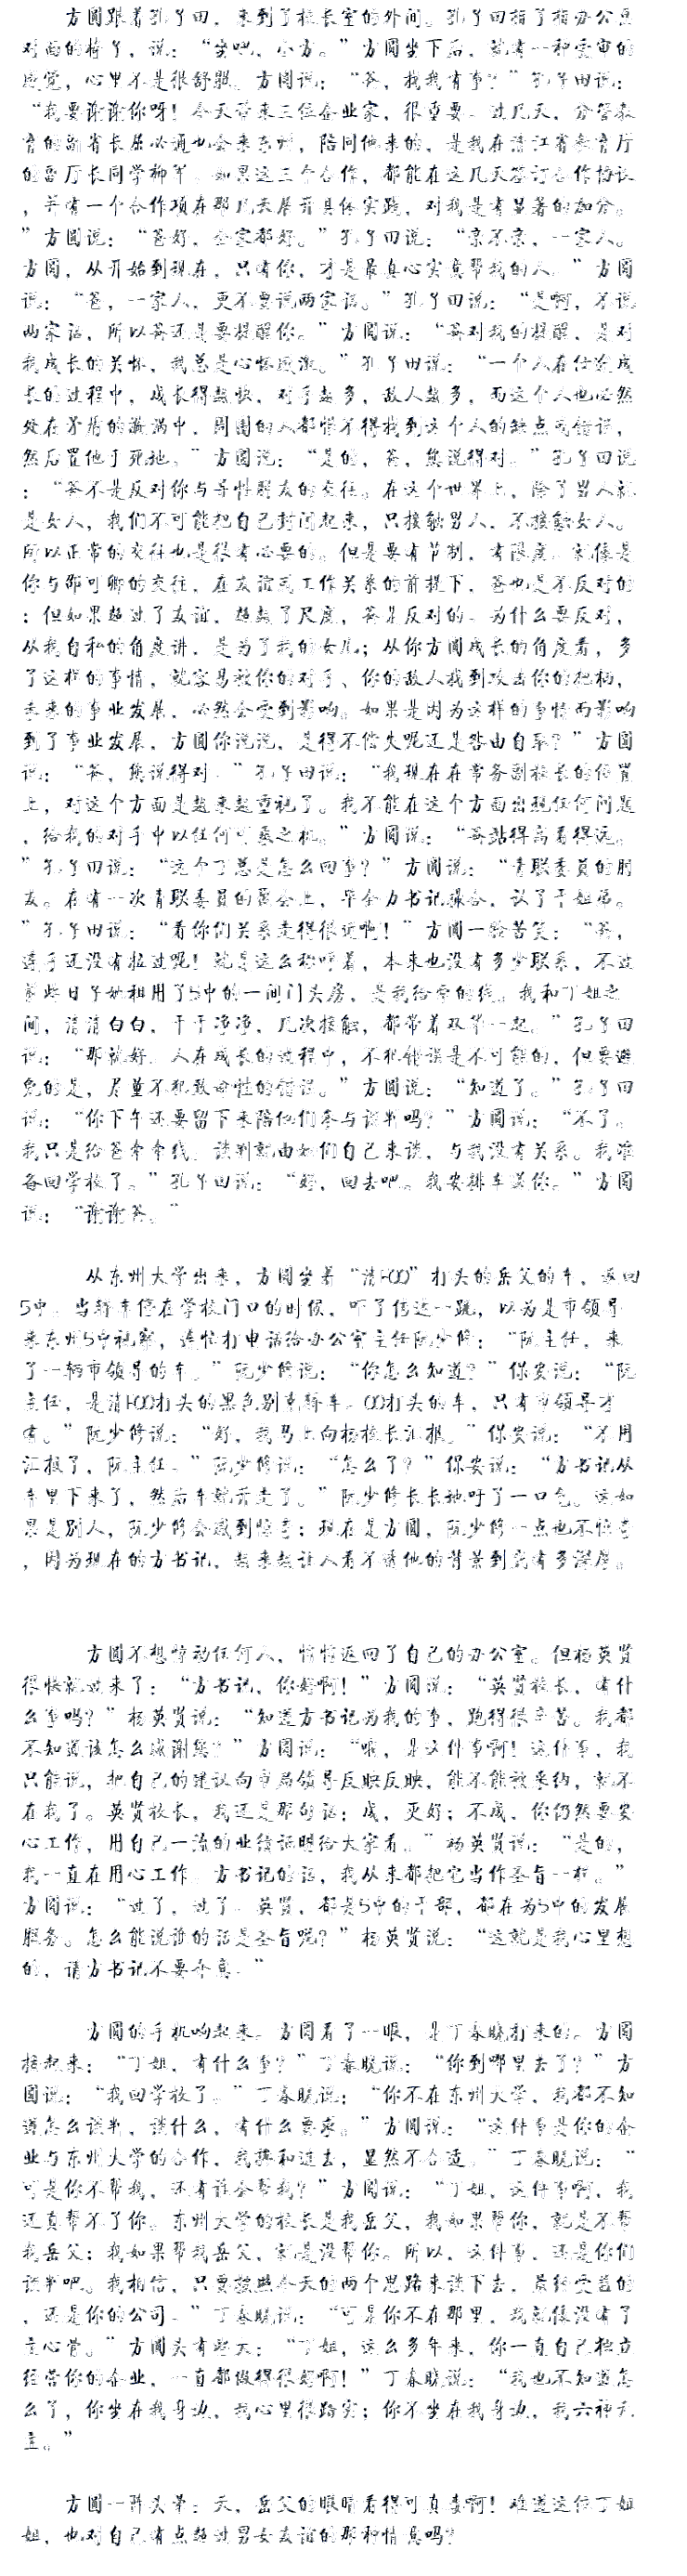 方圆跟着孔子田，来到了校长室的外间。孔子田指了指办公桌
对面的椅子，说：“坐吧，小方。”方圆坐下后，就有一种受审的
感觉，心里不是很舒服。方圆说：“爸，找我有事？”孔子田说：
“我要谢谢你呀！今天带来三位企业家，很重要。过几天，分管教
育的副省长屈必通也会来东州，陪同他来的，是我在清江省教育厅
的副厅长同学柳军。如果这三个合作，都能在这几天签订合作协议
，并有一个合作项在那几天展开具体实践，对我是有显著的加分。
”方圆说：“爸好，全家都好。”孔子田说：“亲不亲，一家人。
方圆，从开始到现在，只有你，才是最真心实意帮我的人。”方圆
说：“爸，一家人，更不要说两家话。”孔子田说：“是啊，不说
两家话，所以爸还是要提醒你。”方圆说：“爸对我的提醒，是对
我成长的关怀，我总是心怀感激。”孔子田说：“一个人在仕途成
长的过程中，成长得越快，对手越多，敌人越多，而这个人也必然
处在矛盾的漩涡中，周围的人都恨不得找到这个人的缺点或错误，
然后置他于死地。”方圆说：“是的，爸，您说得对。”孔子田说
：“爸不是反对你与异性朋友的交往。在这个世界上，除了男人就
是女人，我们不可能把自己封闭起来，只接触男人，不接触女人。
所以正常的交往也是很有必要的。但是要有节制，有限度。就像是
你与邵可卿的交往，在友谊或工作关系的前提下，爸也是不反对的
；但如果超过了友谊，超越了尺度，爸是反对的。为什么要反对，
从我自私的角度讲，是为了我的女儿；从你方圆成长的角度看，多
了这样的事情，就容易被你的对手、你的敌人找到攻击你的把柄，
未来的事业发展，必然会受到影响。如果是因为这样的事情而影响
到了事业发展，方圆你说说，是得不偿失呢还是咎由自取？”方圆
说：“爸，您说得对。”孔子田说：“我现在在常务副校长的位置
上，对这个方面是越来越重视了。我不能在这个方面出现任何问题
，给我的对手中以任何可乘之机。”方圆说：“爸站得高看得远。
”孔子田说：“这个丁总是怎么回事？”方圆说：“青联委员的朋
友。在有一次青联委员的宴会上，毕全力书记撮合，认了干姐弟。
”孔子田说：“看你们关系走得很近啊！”方圆一脸苦笑：“爸，
连手还没有拉过呢！就是这么称呼着，本来也没有多少联系，不过
前些日子她租用了5中的一间门头房，是我给牵的线。我和丁姐之
间，清清白白，干干净净，几次接触，都带着双华一起。”孔子田
说：“那就好。人在成长的过程中，不犯错误是不可能的，但要避
免的是，尽量不犯致命性的错误。”方圆说：“知道了。”孔子田
说：“你下午还要留下来陪他们参与谈判吗？”方圆说：“不了。
我只是给爸牵牵线，谈判就由她们自己来谈，与我没有关系。我准
备回学校了。”孔子田说：“好，回去吧。我安排车送你。”方圆
说：“谢谢爸。”
从东州大学出来，方圆坐着“清FOO”打头的岳父的车，返回
5中。当轿车停在学校门口的时候，吓了传达一跳，以为是市领导
来东州5中视察，连忙打电话给办公室主任阮少修：“阮主任，来
了一辆市领导的车。”阮少修说：“你怎么知道？”保安说：“阮
主任，是清FOO打头的黑色别克轿车。OO打头的车，只有市领导才
有。”阮少修说：“好，我马上向杨校长汇报。”保安说：“不用
汇报了，阮主任。”阮少修说：“怎么了？”保安说：“方书记从
车里下来了，然后车就开走了。”阮少修长长地吁了一口气。这如
果是别人，阮少修会感到惊奇；现在是方圆，阮少修一点也不惊奇
，因为现在的方书记，越来越让人看不透他的背景到底有多深厚。
方圆不想惊动任何人，悄悄返回了自己的办公室。但杨英贤
很快就过来了：“方书记，你好啊！”方圆说：“英贤校长，有什
么事吗？”杨英贤说：“知道方书记为我的事，跑得很辛苦。我都
不知道该怎么感谢您？”方圆说：“哦，是这件事啊！这件事，我
只能说，把自己的建议向市局领导反映反映，能不能被采纳，就不
在我了。英贤校长，我还是那句话：成，更好；不成，你仍然要安
心工作，用自己一流的业绩证明给大家看。”杨英贤说：“是的，
我一直在用心工作。方书记的话，我从来都把它当作圣旨一样。”
方圆说：“过了，过了。英贤，都是5中的干部，都在为5中的发展
服务。怎么能说谁的话是圣旨呢？”杨英贤说：“这就是我心里想
的，请方书记不要介意。”
方圆的手机响起来。方圆看了一眼，是丁春晓打来的。方圆
接起来：“丁姐，有什么事？”丁春晓说：“你到哪里去了？”方
圆说：“我回学校了。”丁春晓说：“你不在东州大学，我都不知
道怎么谈判，谈什么，有什么要求。”方圆说：“这件事是你的企
业与东州大学的合作，我掺和进去，显然不合适。”丁春晓说：“
可是你不帮我，还有谁会帮我？”方圆说：“丁姐，这件事啊，我
还真帮不了你。东州大学的校长是我岳父，我如果帮你，就是不帮
我岳父；我如果帮我岳父，就是没帮你。所以，这件事，还是你们
谈判吧。我相信，只要按照今天的两个思路来谈下去，最终受益的
，还是你的公司。”丁春晓说：“可是你不在那里，我就像没有了
主心骨。”方圆头有些大：“丁姐，这么多年来，你一直自己独立
经营你的企业，一直都做得很好啊！”丁春晓说：“我也不知道怎
么了，你坐在我身边，我心里很踏实；你不坐在我身边，我六神无
主。”
方圆一阵头晕：天，岳父的眼睛看得可真毒啊！难道这位丁姐
姐，也对自己有点超过男女友谊的那种情愫吗？